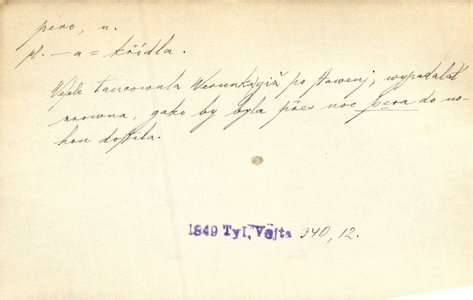 pero, n.
pl. – a = křídla.
Vesele tancowala Werunka giž po stawenj; wypadalať
zrowna, gako by byla přes noc pera do no-
hou dostala.
1849 Tyl, Vojta 340, 12.